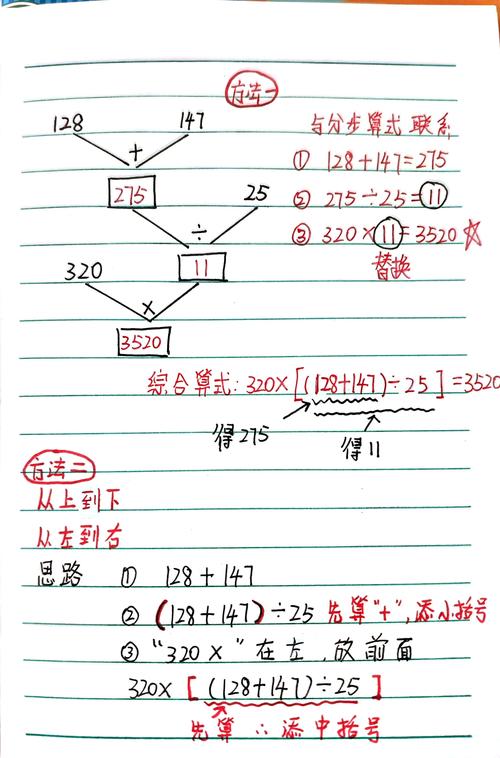 方法一
128 147 与分步算式 联系
+ ① 128+147=275
275 25 ② 275÷25=11
÷ ③ 320×11=3520 ☆
320 11 替换
×
3520
综合算式:320×[(128+147)÷25]=3520
得275 得11
方法二
从上到下
从左到右
思路 ① 128+147
② (128+147)÷25 先算"+",添小括号
③ "320×"在左,放前面
320×[(128+147)÷25]
先算∴添中括号